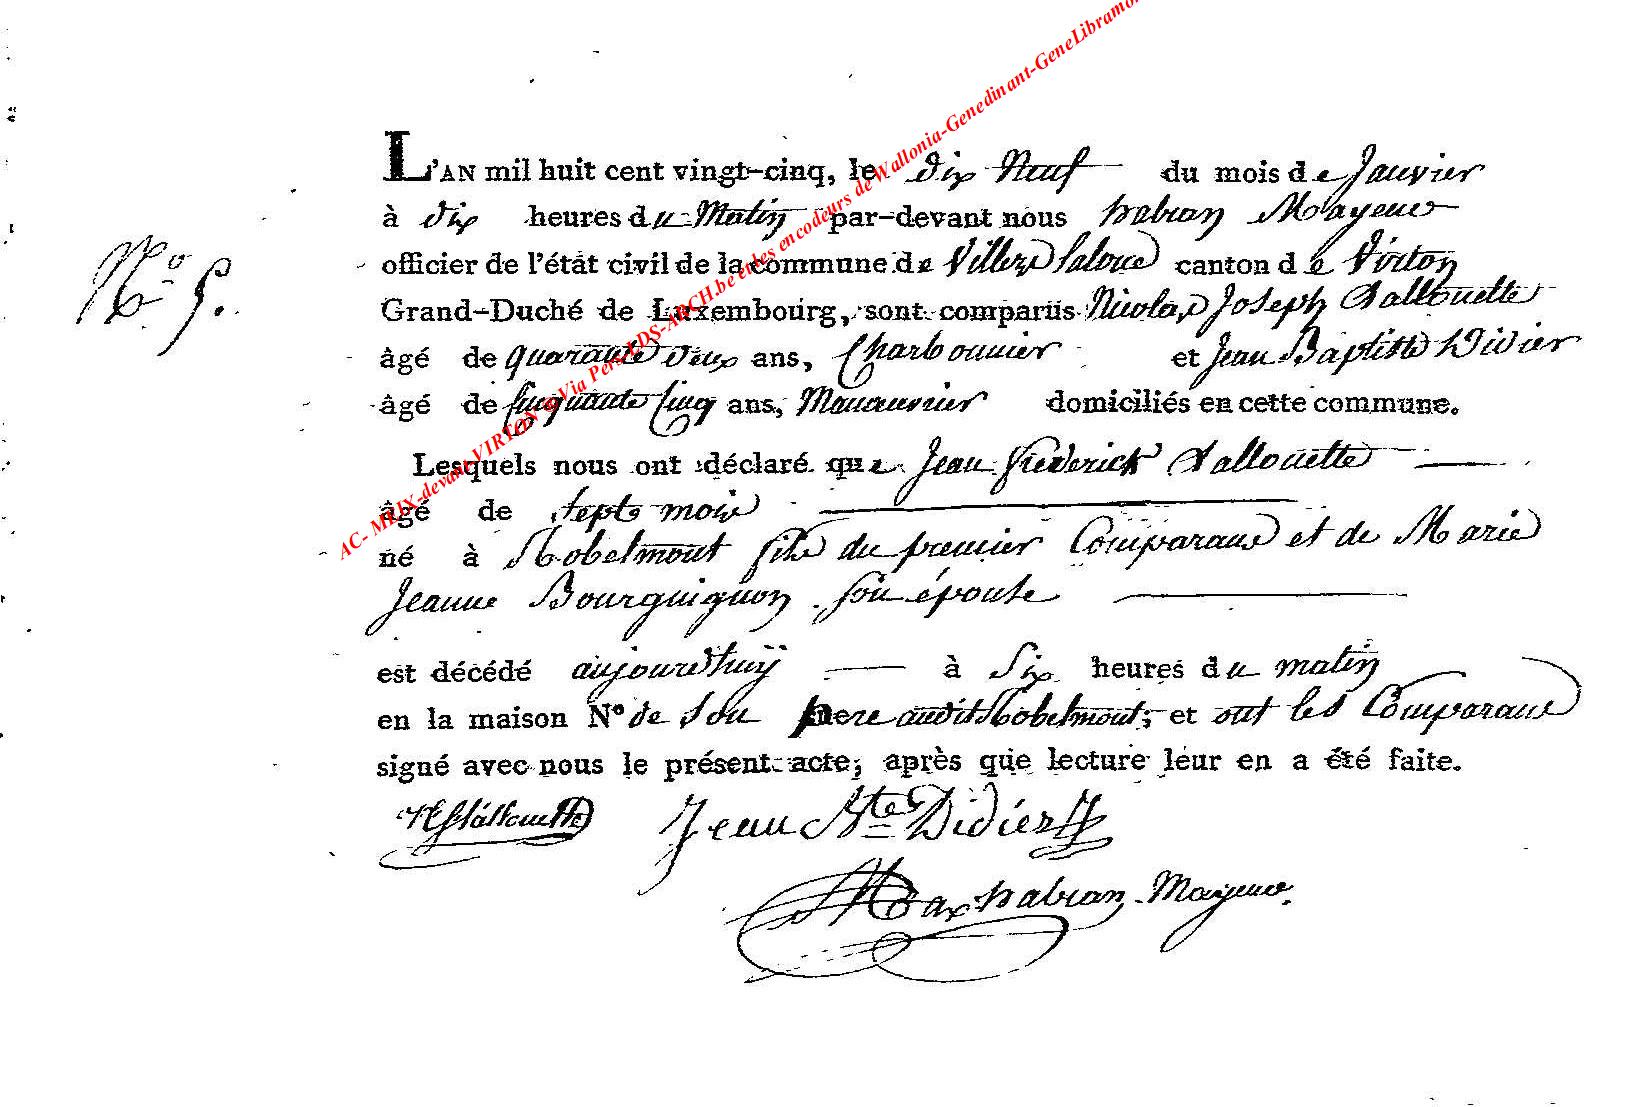 AC- MEIX-devant-VIRTON Via Pers LDS-ARCH.be et les encodeurs de Wallonia-Genedinant-GeneLibramo
L'AN mil huit cent vingt-cinq, le dix Neuf du mois de Janvier
à dix heures du Matin par-devant nous habran Mayeur
N.o 5.
officier de l'état civil de la commune de Villers laloue canton de Virton
Grand-Duché de Luxembourg, sont comparus Nicolas Joseph Lallouette
âgé de quarante deux ans, Charbonnier et Jean Baptiste Didier
âgé de Cinquante Cinq ans, Manœuvrier domiciliés en cette commune.
Lesquels nous ont déclaré que Jean frederick Lallouette
âgé de sept mois
né à Robelmont fils du premier Comparans et de Marie
Jeanne Bourguignon son épouse
est décédé aujourdhuÿ à Six heures du matin
en la maison N° de son pere audit Robelmont, et ont les Comparans
signé avec nous le présent acte, après que lecture leur en a été faite.
Lallouette Jean Bte Didier
habran Mayeur.